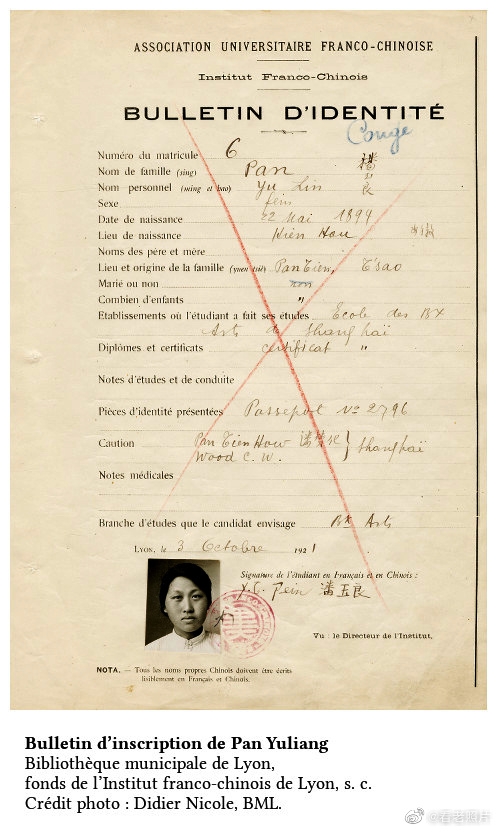 ASSOCIATION UNIVERSITAIRE FRANCO-CHINOISE
Institut Franco-Chinois
BULLETIN D'IDENTITÉ
Congé
Numéro du matricule 6
Nom de famille (sing) Pan 潘
Nom personnel (ming et hao) Yu Lin 玉良
Sexe fem
Date de naissance 22 Mai 1899
Lieu de naissance Kien Hou
Noms des père et mère
Lieu et origine de la famille (yuen tsié) Pan Tien, Tsao
Marié ou non non
Combien d'enfants "
Etablissements où l'étudiant a fait ses études Ecole des Bx
Arts de Shanghaï
Diplômes et certificats certificat "
Notes d'études et de conduite
Pièces d'identité présentées Passeport No 2796
Caution Pan Tien How 潘 } Shanghaï
Wood C. W.
Notes médicales
Branche d'études que le candidat envisage Bx Arts
Lyon, le 3 Octobre 1921
Signature de l'étudiant en Français et en Chinois :
潘玉良
Vu : le Directeur de l'Institut,
NOTA. — Tous les noms propres Chinois doivent être écrits
lisiblement en Français et Chinois.
Bulletin d'inscription de Pan Yuliang
Bibliothèque municipale de Lyon,
fonds de l'Institut franco-chinois de Lyon, s. c.
Crédit photo : Didier Nicole, BML.
@看老照片